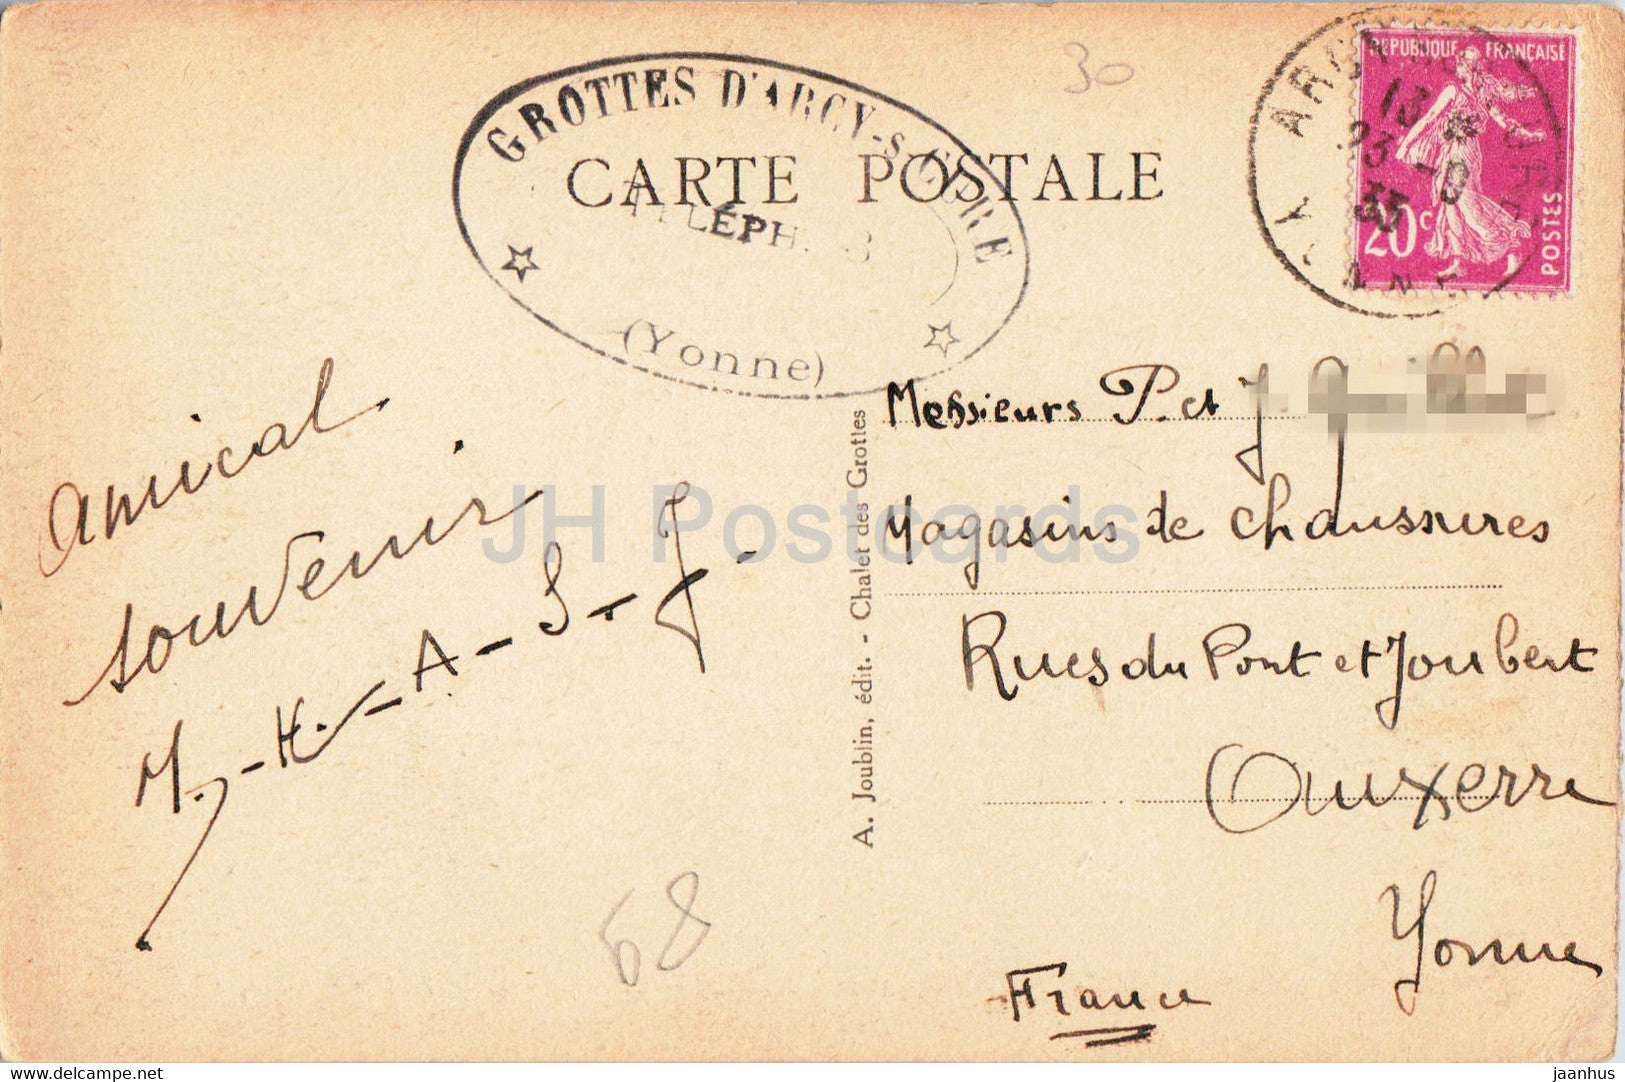 30
GROTTES D'ARCY-s-CURE
TÉLÉPH. 3
(Yonne)
CARTE POSTALE
REPUBLIQUE FRANÇAISE
20c
POSTES
ARCY
13
23 -9
35
YONNE
Amical
souvenir
M. - H. - A - S - J -
68
A. Joublin, édit. - Chalet des Grottes
Messieurs P. et J.
Magasins de chaussures
Rues du Pont et Joubert
Auxerre
Yonne
France
JH Postcards
delcampe.net
jaanhus